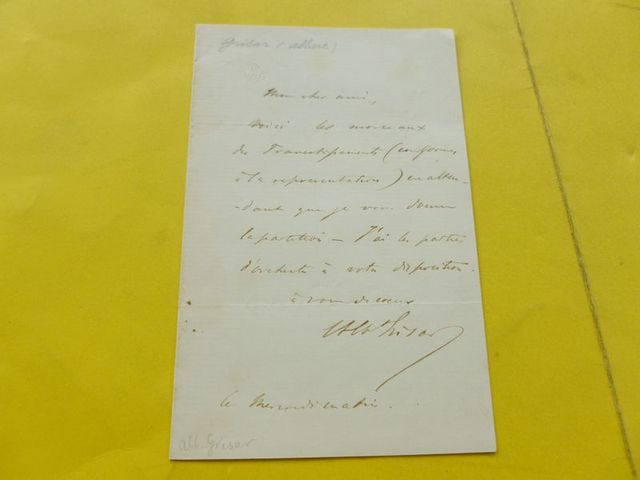 Grisar (Albert)
Mon cher ami,
Voici les morceaux
des Travestissements (conformes
à la représentation) en atten-
-dant que je vous donne
la partition — J'ai les parties
d'orchestre à votre disposition.
à vous de coeur
Alb Grisar
ce Mercredi matin.
Alb. Grisar